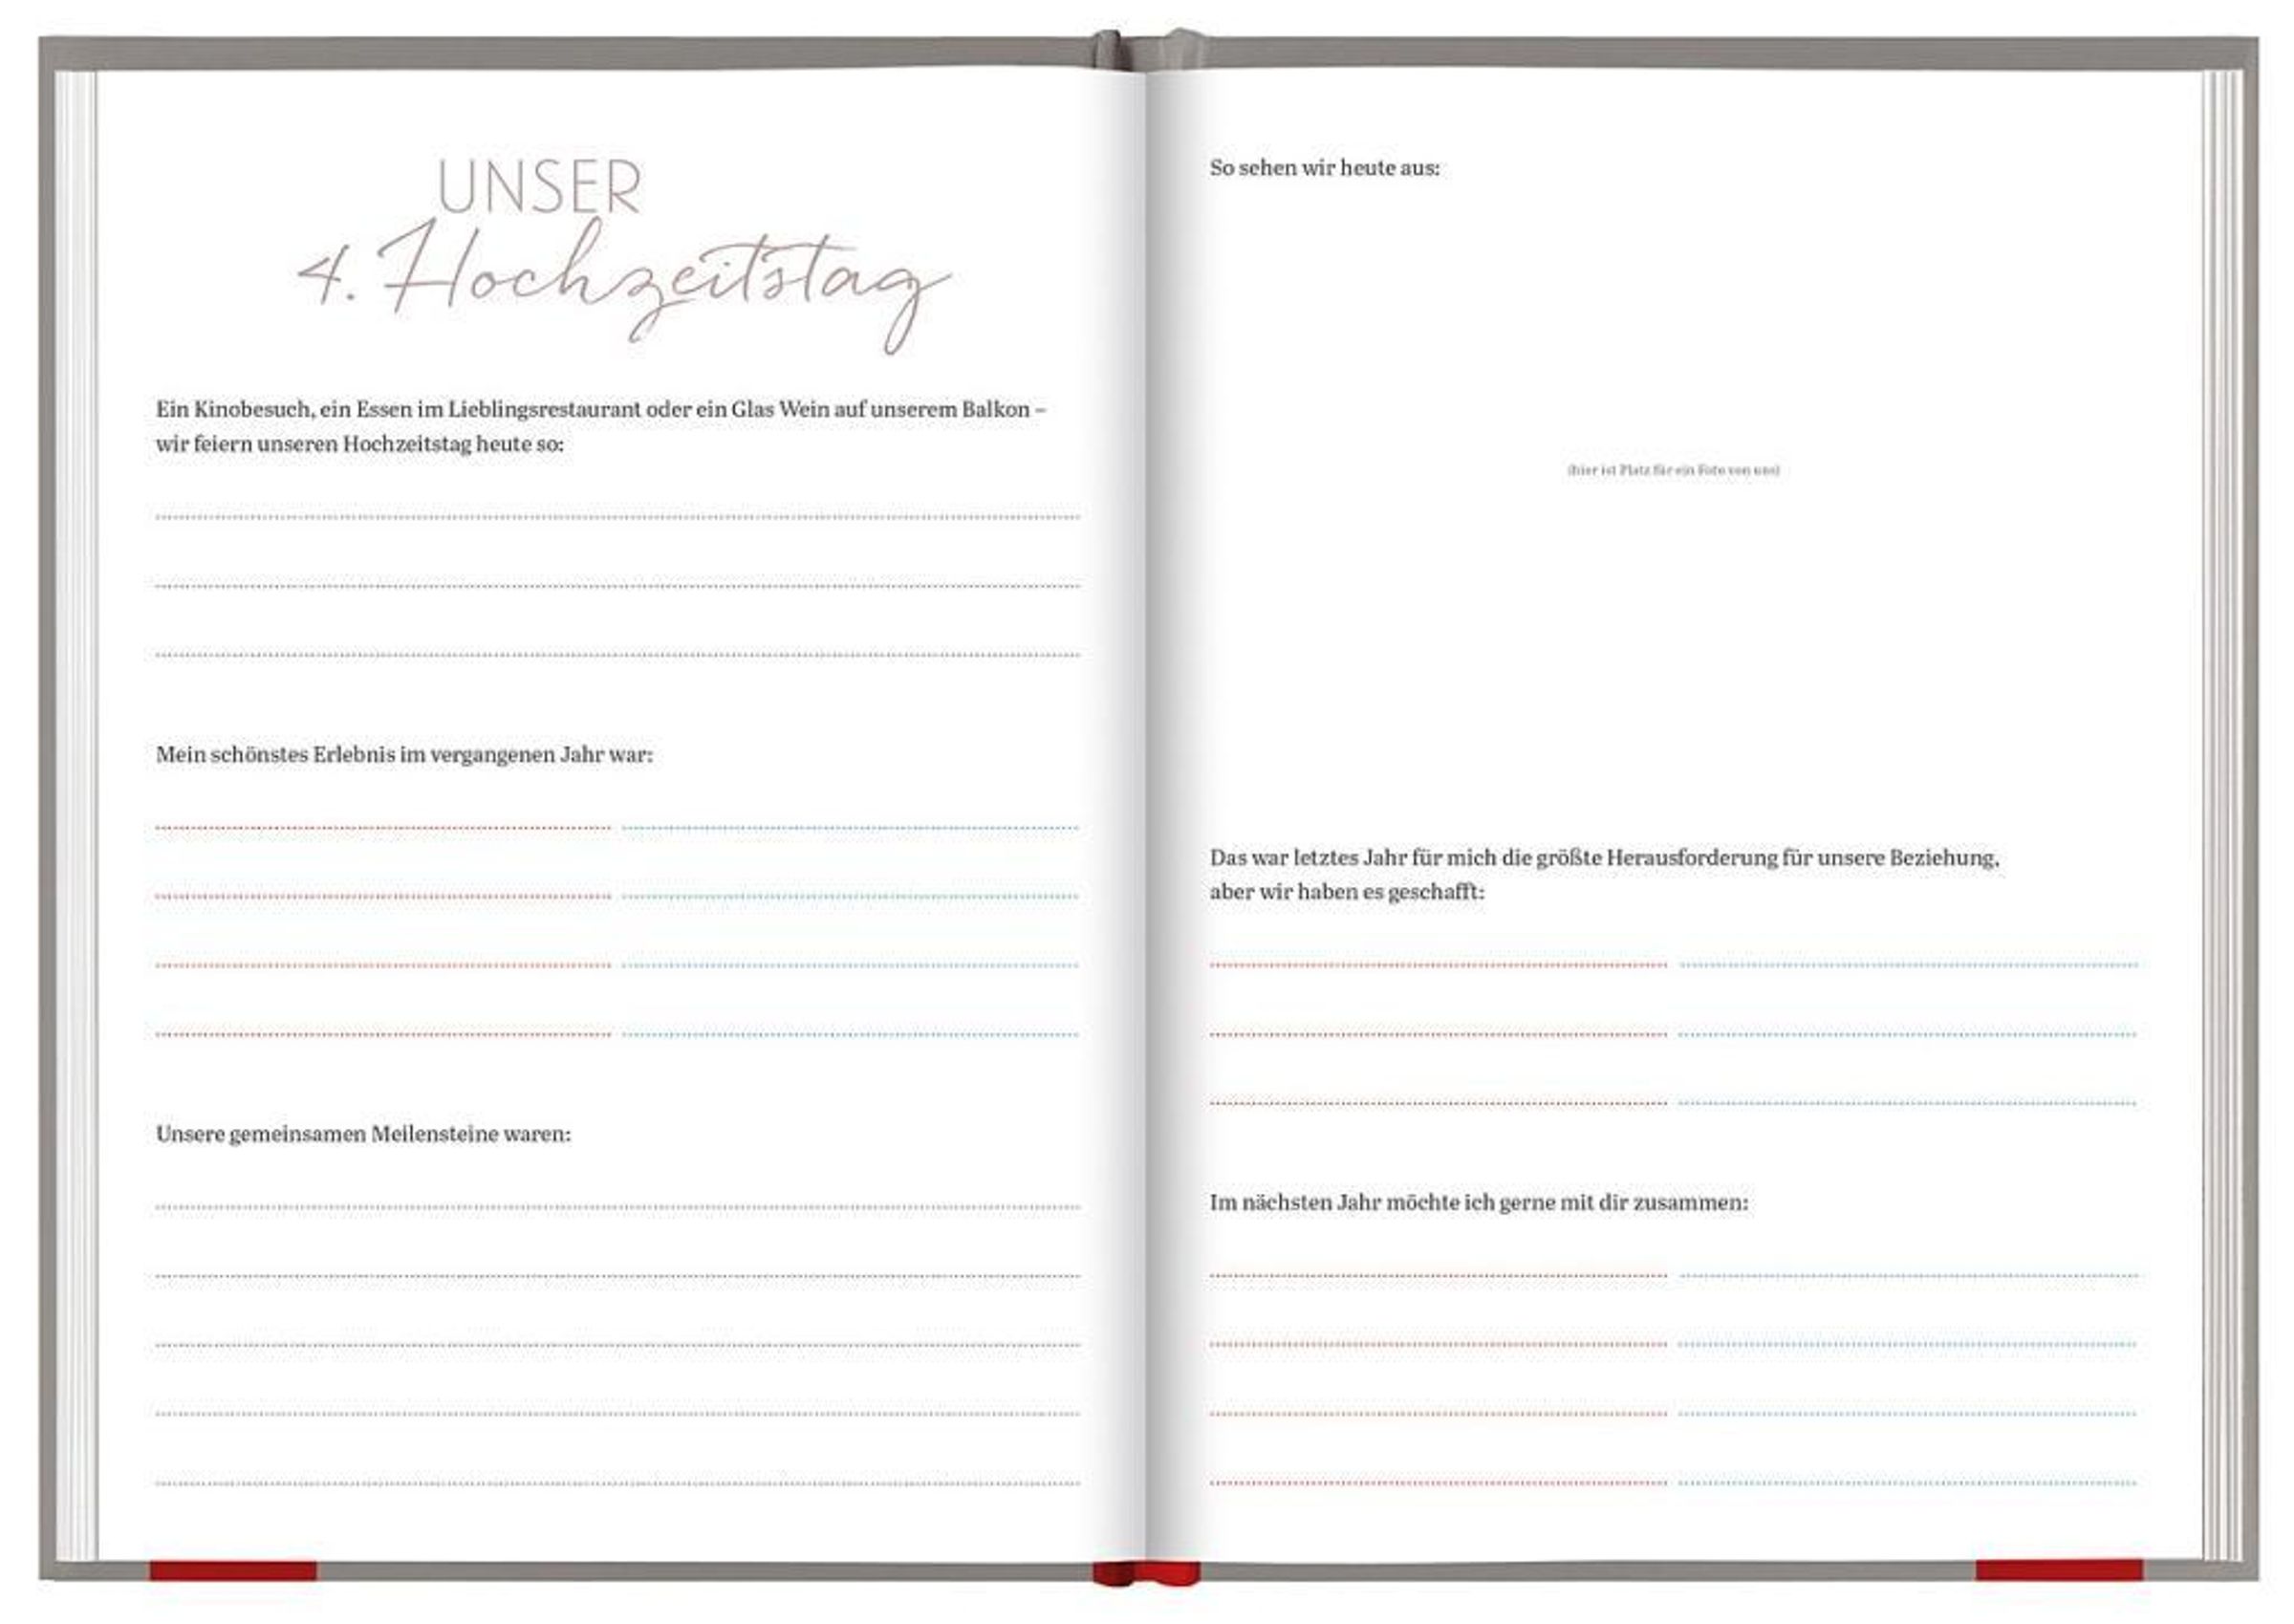 UNSER
4. Hochzeitstag
Ein Kinobesuch, ein Essen im Lieblingsrestaurant oder ein Glas Wein auf unserem Balkon –
wir feiern unseren Hochzeitstag heute so:
Mein schönstes Erlebnis im vergangenen Jahr war:
Unsere gemeinsamen Meilensteine waren:
So sehen wir heute aus:
(hier ist Platz für ein Foto von uns)
Das war letztes Jahr für mich die größte Herausforderung für unsere Beziehung,
aber wir haben es geschafft:
Im nächsten Jahr möchte ich gerne mit dir zusammen: